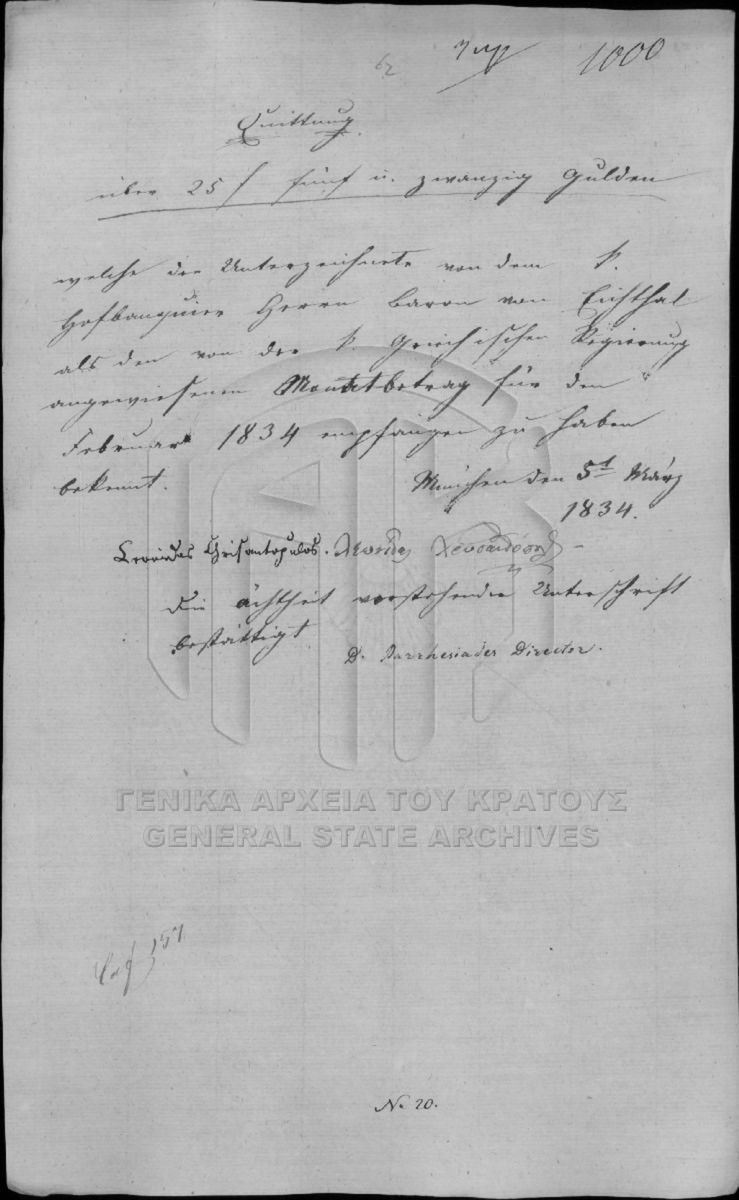 62 1000
Quittung.
über 25 f fünf u. zwanzig Gulden
welche der Unterzeichnete von dem k.
Hofbanquier Herrn Baron von Eichthal
als den von der k. Griechischen Regierung
angewiesenen Monatbetrag für den
Februar 1834 empfangen zu haben
bekennt. München den 5t März
1834.
Leonidas Chrisantopulos. Λεωνίδας
Die Ächtheit vorstehender Unterschrift
bestättigt
D. Parrhesiades Director.
ΓΕΝΙΚΑ ΑΡΧΕΙΑ ΤΟΥ ΚΡΑΤΟΥΣ
GENERAL STATE ARCHIVES
157
No. 20.